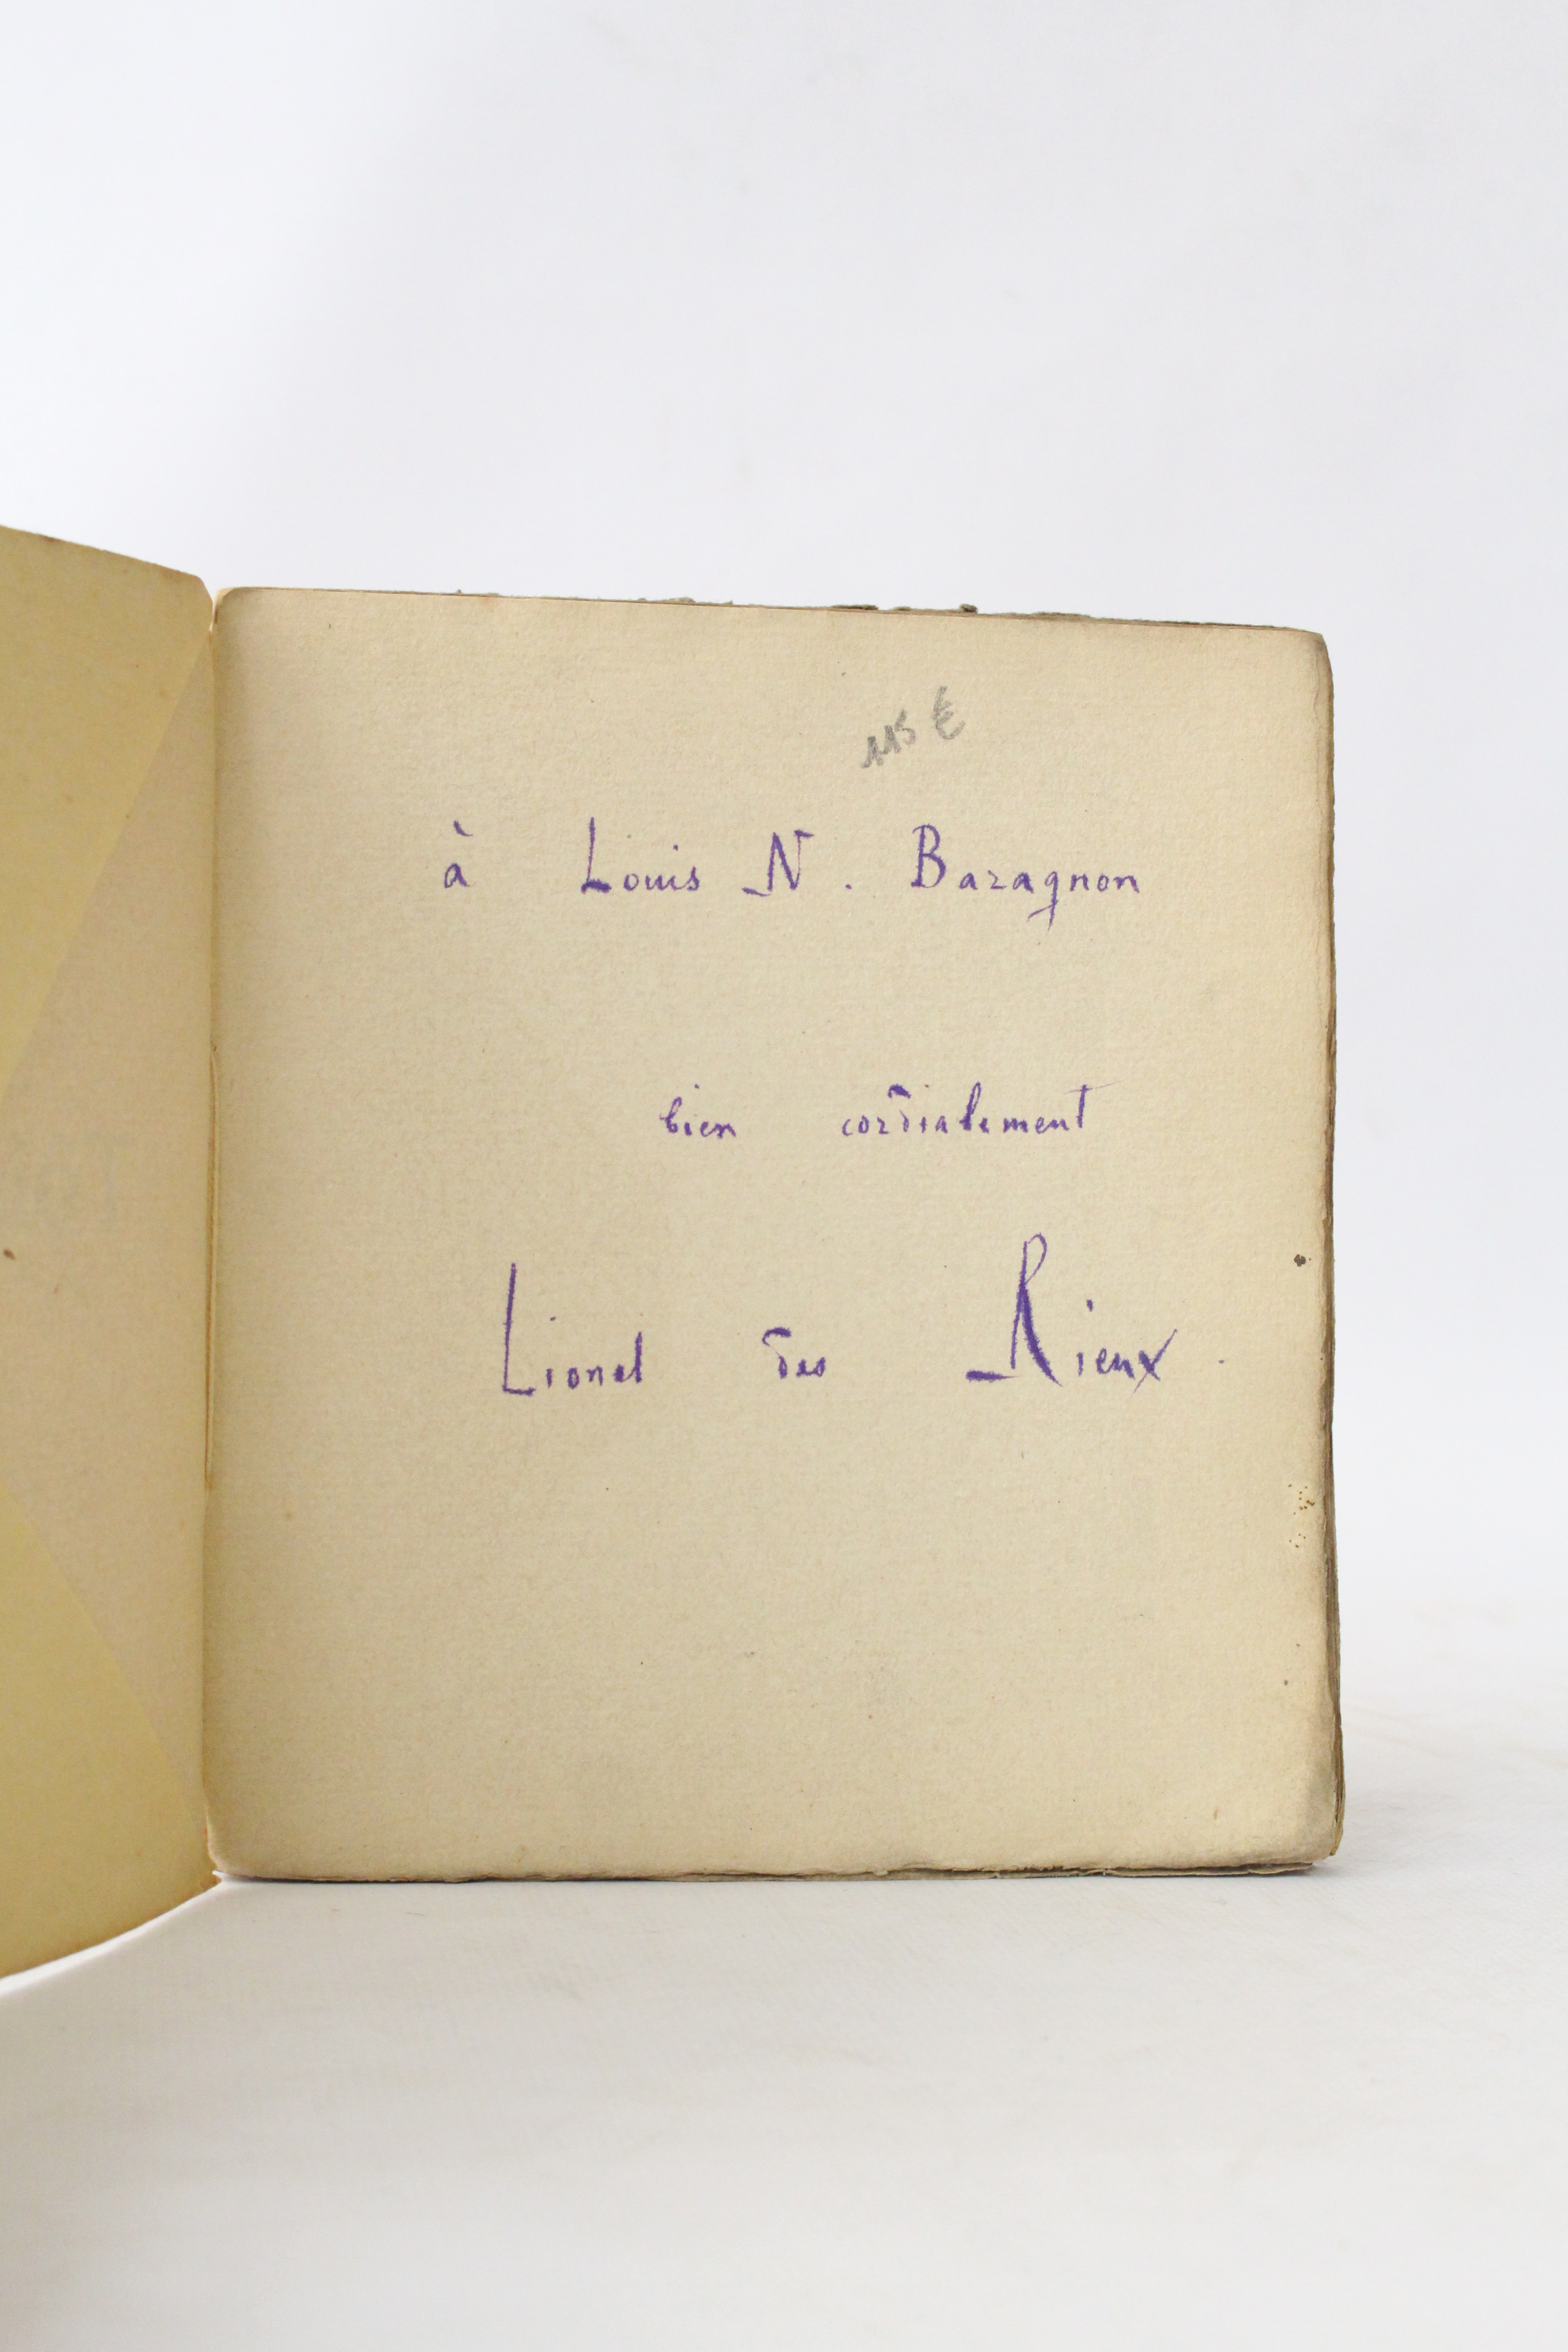 115 €
à Louis N. Baragnon
bien cordialement
Lionel des Rieux.